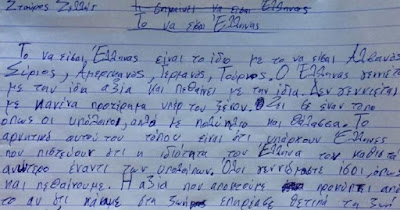 Σταύρος Ζιλλής Τι σημαίνει να είσαι Έλληνας
Το να είσαι Έλληνας
Το να είσαι Έλληνας είναι το ίδιο με το να είσαι Αλβανός,
Σύριος, Αμερικανός, Γερμανός, Τούρκος. Ο Έλληνας γεννιέται
με την ίδια αξία και πεθαίνει με την ίδια. Δεν γεννιέται
με κανένα προτέρημα υπέρ του ξένου. Ζει σε έναν τόπο
όπως οι υπόλοιποι, απλά με πολύ ήλιο και θάλασσα. Το
αρνητικό αυτού του τόπου είναι ότι υπάρχουν Έλληνες
που πιστεύουν ότι η ιδιότητα του Έλληνα τον καθιστά
ανώτερο έναντι των υπολοίπων. Όλοι γεννιόμαστε ίσοι, όπως
και πεθαίνουμε. Η αξία που αποκτούμε προκύπτει από
το αν ότι κάναμε στη ζωή επηρέασε θετικά τη ζωή